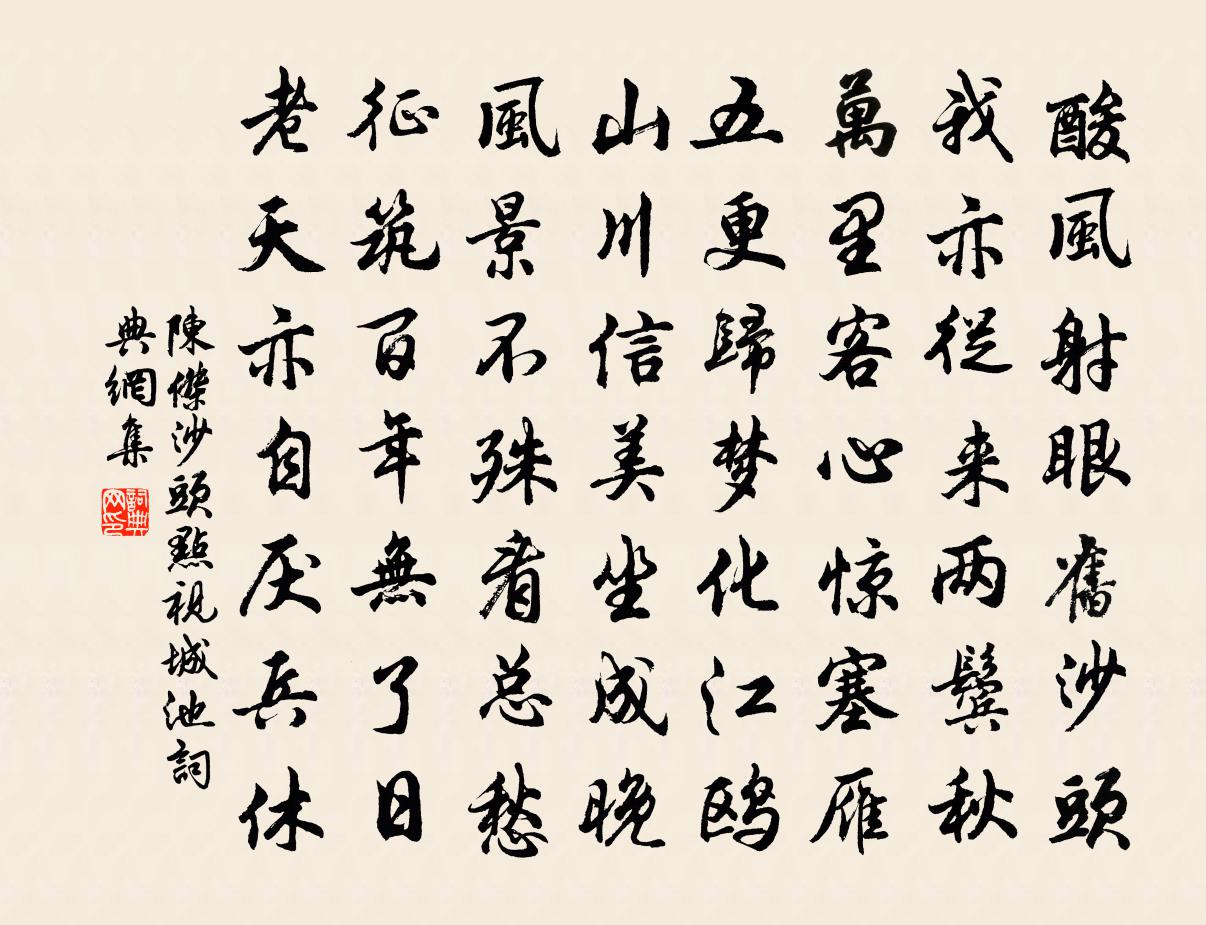 酸風射眼舊沙頭
我亦從来两鬓秋
萬里客心惊塞雁
五更歸梦化江鸥
山川信美坐成晚
風景不殊看总愁
征筑百年無了日
老天亦自厌兵休
陳傑沙頭點視城池詞
典網集
詞典
网印